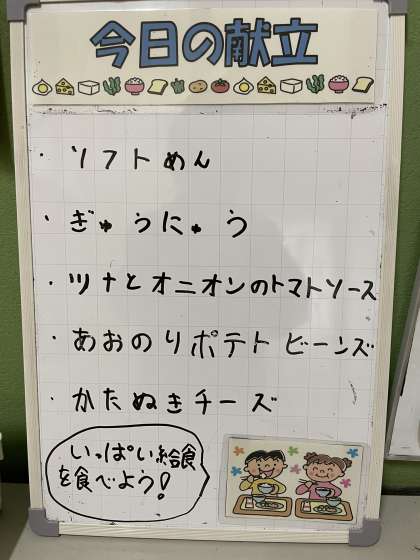 今日の献立
・ソフトめん
・ぎゅうにゅう
・ツナとオニオンのトマトソース
・あおのりポテトビーンズ
・かたぬきチーズ
いっぱい給食
を食べよう!